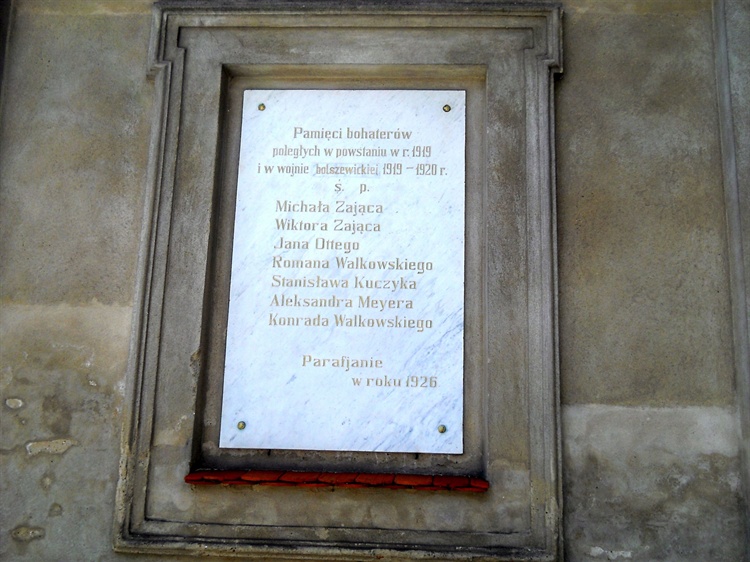 Pamięci bohaterów
poległych w powstaniu w r. 1919
i w wojnie bolszewickiej 1919 – 1920 r.
ś. p.
Michała Zająca
Wiktora Zająca
Jana Ottego
Romana Walkowskiego
Stanisława Kuczyka
Aleksandra Meyera
Konrada Walkowskiego
Parafjanie
w roku 1926